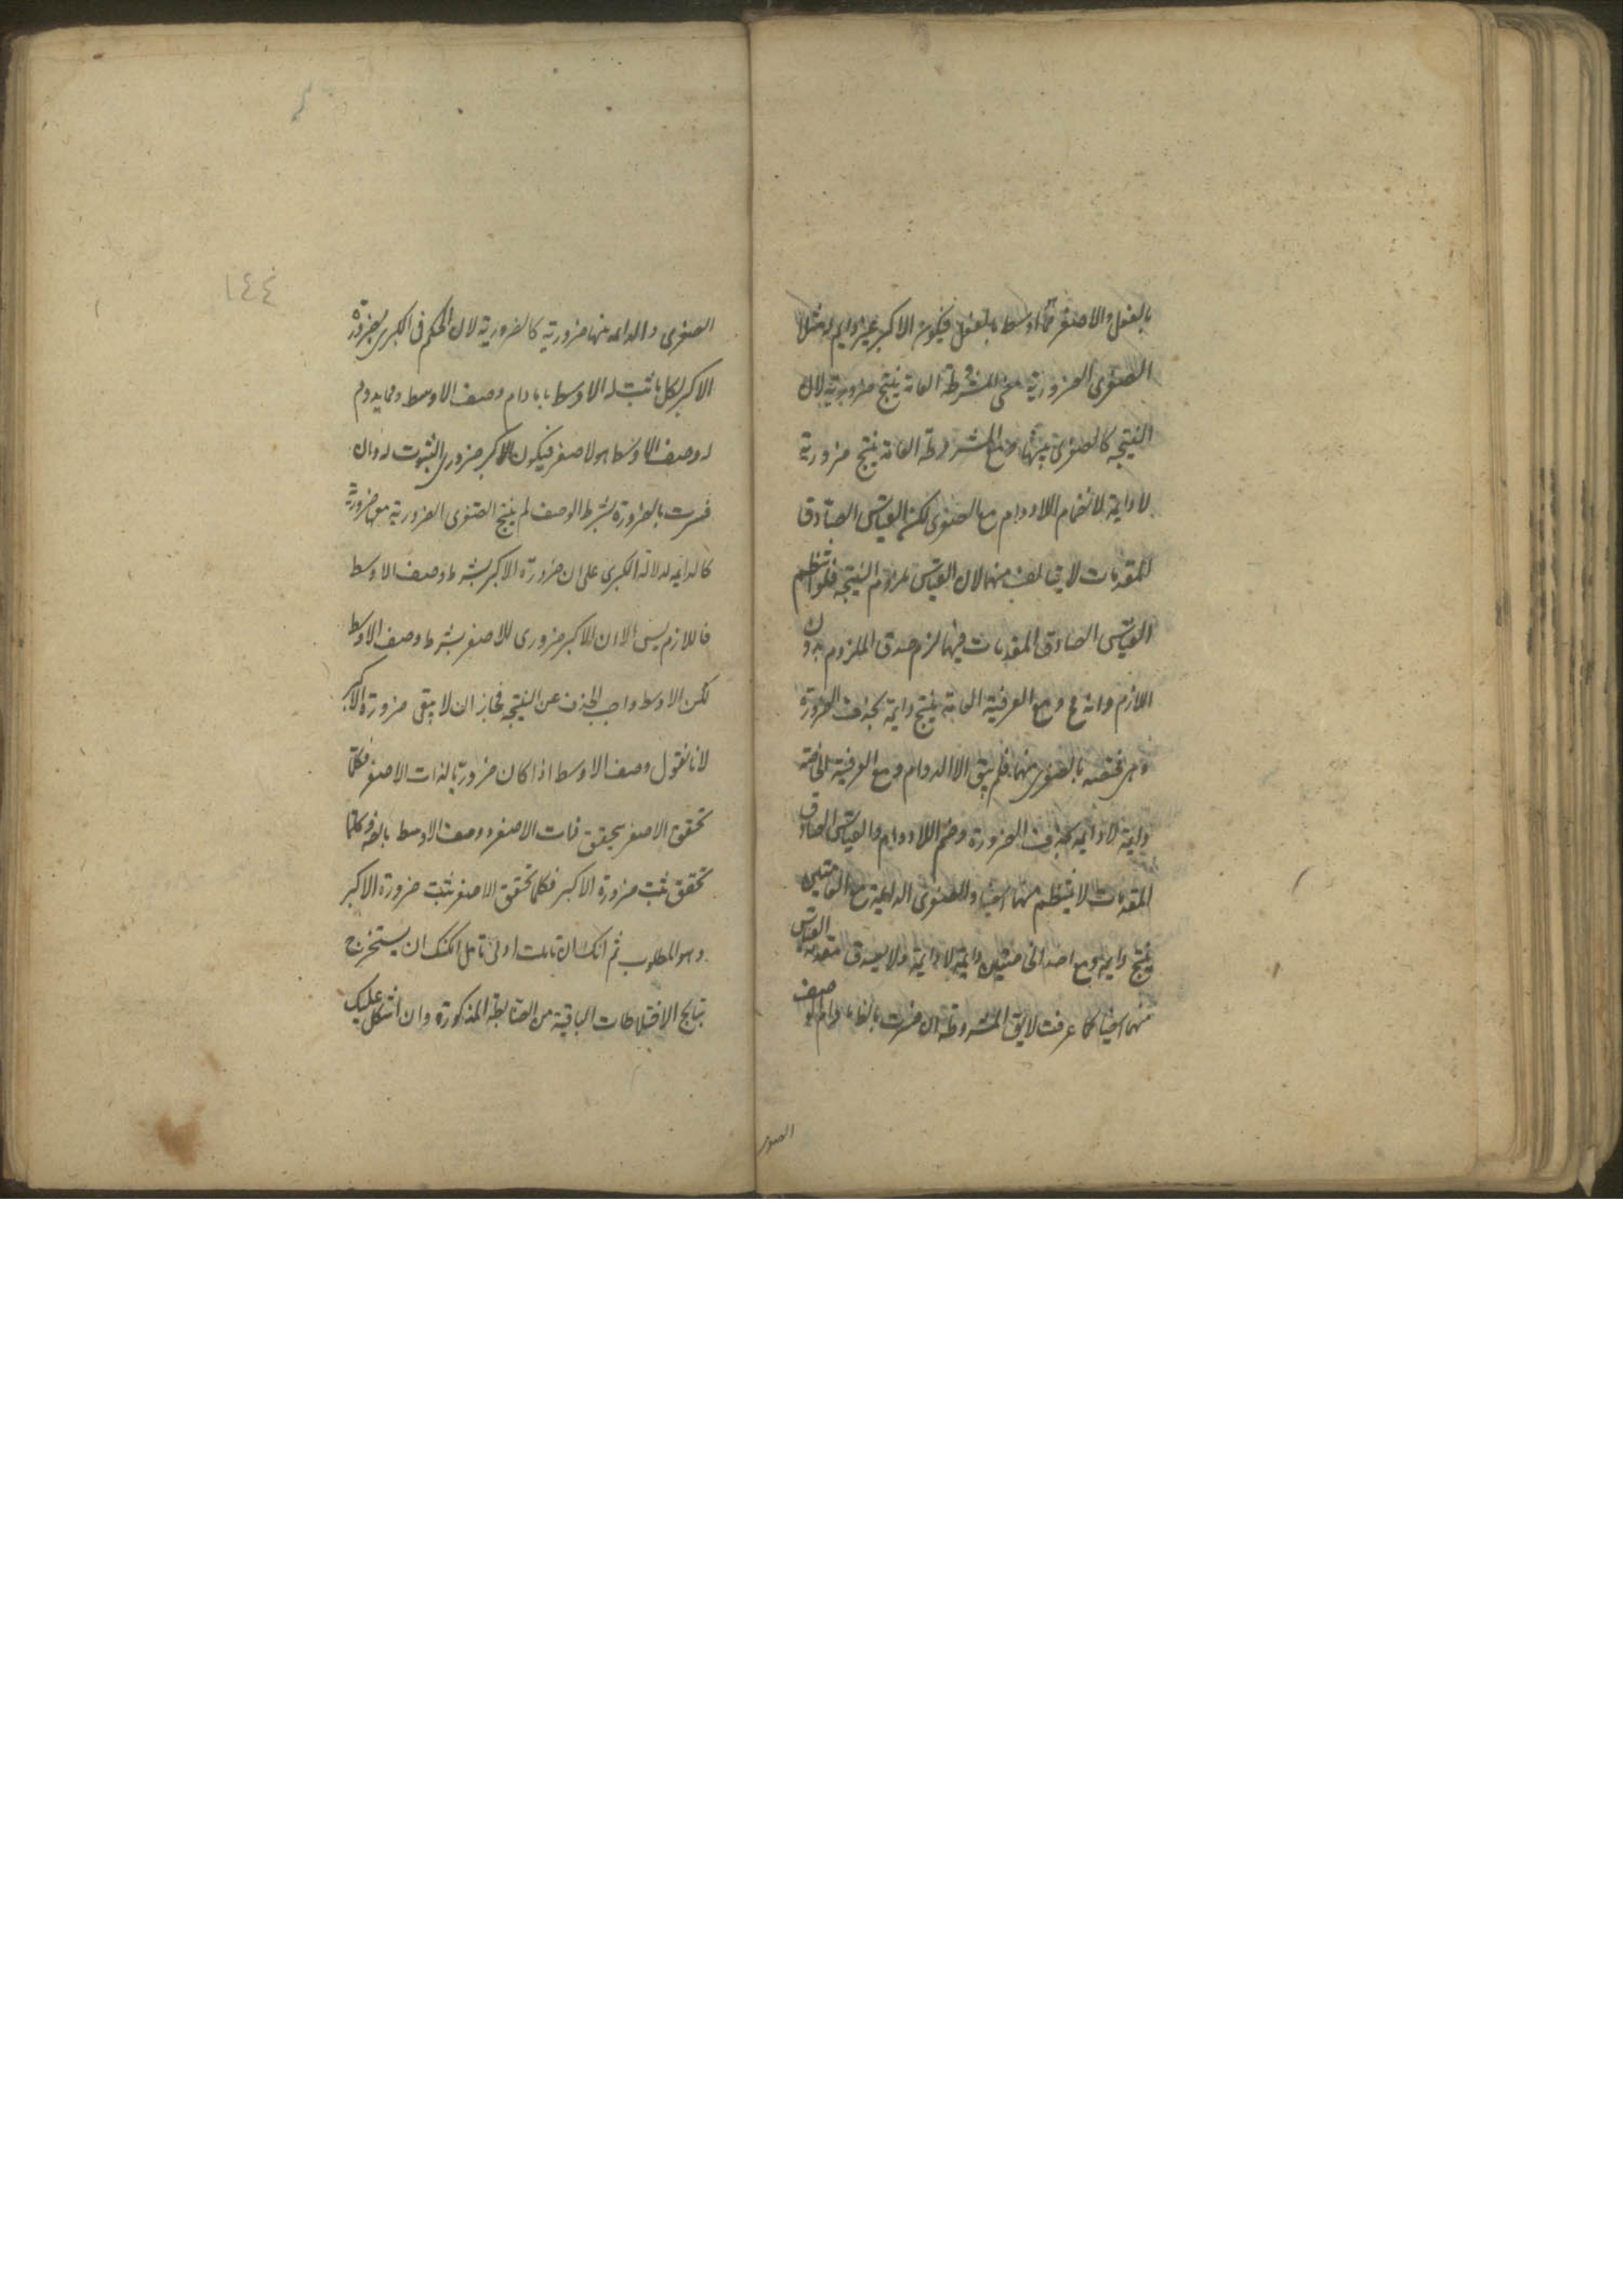 بالفعل والاصغر مما اوسط بالفعل فيكون الاكبر غير دايم له مثلا
الصغرى الضرورية مع المشروطة العامة ينتج ضرورية لان
النتيجة كالصغرى بعينها ومع المشروطة الخاصة ينتج ضرورية
لا دايمة لانضمام اللادوام مع الصغرى لكن القياس الصادق
المقدمات لا يتالف منهما لان القياس ملزوم النتيجة فلو انتظم
القياس الصادق المقدمات منهما لزم صدق الملزوم بدون
اللازم وانه مح ومع العرفية العامة ينتج دايمة بحذف الضرورة
وهى مختصة بالصغرى منهما فلم يبق الا الدوام ومع العرفية الخاصة
دايمة لا دايمة بحذف الضرورة وضم اللادوام والقياس الصادق
المقدمات لا ينتظم منهما ايضا والصغرى الدايمة مع العامتين
ينتج دايمة ومع احدى الخاصتين دايمة لا دايمة ولا يصدق مقدمة القياس
منهما ايضا كما عرفت لا يق المشروطة ان فسرت بالضا ما دام الوصف
الصغرى
١٤٤
الصغرى والدايمة منها ضرورية كالضرورية لان الحكم فى الكبرى بضرورة
الاكبر لكل ما ثبت له الاوسط ما دام وصف الاوسط ومما يدوم
له وصف الاوسط هو الاصغر فيكون الاكبر ضرورى الثبوت له وان
فسرت بالضرورة بشرط الوصف لم ينتج الصغرى الضرورية معها ضرورية
كالدايمة لدلالة الكبرى على ان ضرورة الاكبر بشرط وصف الاوسط
فاللازم ليس الا ان الاكبر ضرورى للاصغر بشرط وصف الاوسط
لكن الاوسط واجب الحذف عن النتيجة فجاز ان لا يبقى ضرورة الاكبر
لانا نقول وصف الاوسط اذا كان ضروريا لذات الاصغر فكلما
تحقق الاصغر يحقق ذات الاصغر ووصف الاوسط بالضرورة وكلما
تحقق ثبت ضرورة الاكبر فكلما تحقق الاصغر ثبت ضرورة الاكبر
وهو المطلوب ثم انك ان تاملت ادنى تامل امكنك ان يستخرج
نتايج الاختلاطات الباقية من الضابطة المذكورة وان اشكل عليك